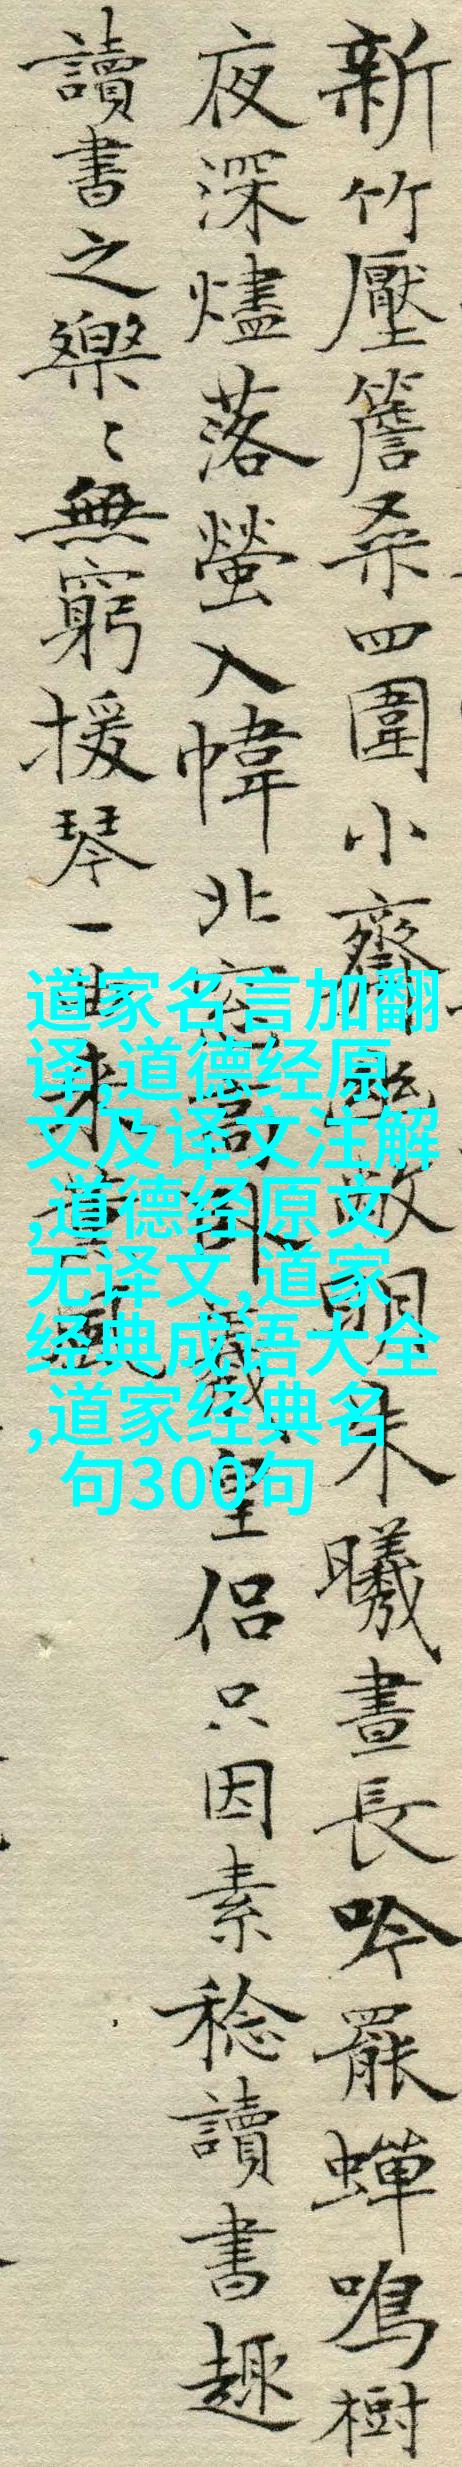 新竹壓簷桑四圍小齋幽敞明朱曦晝長吟罷蟬鳴樹
夜深燼落螢入幃北窗高卧羲皇侶只因素稔讀書趣
讀書之樂〻無窮援琴一曲來薰風
道家名言加翻
译,道德经原
文及译文注解
,道德经原文
无译文,道家
经典成语大全
,道家经典名
句300句